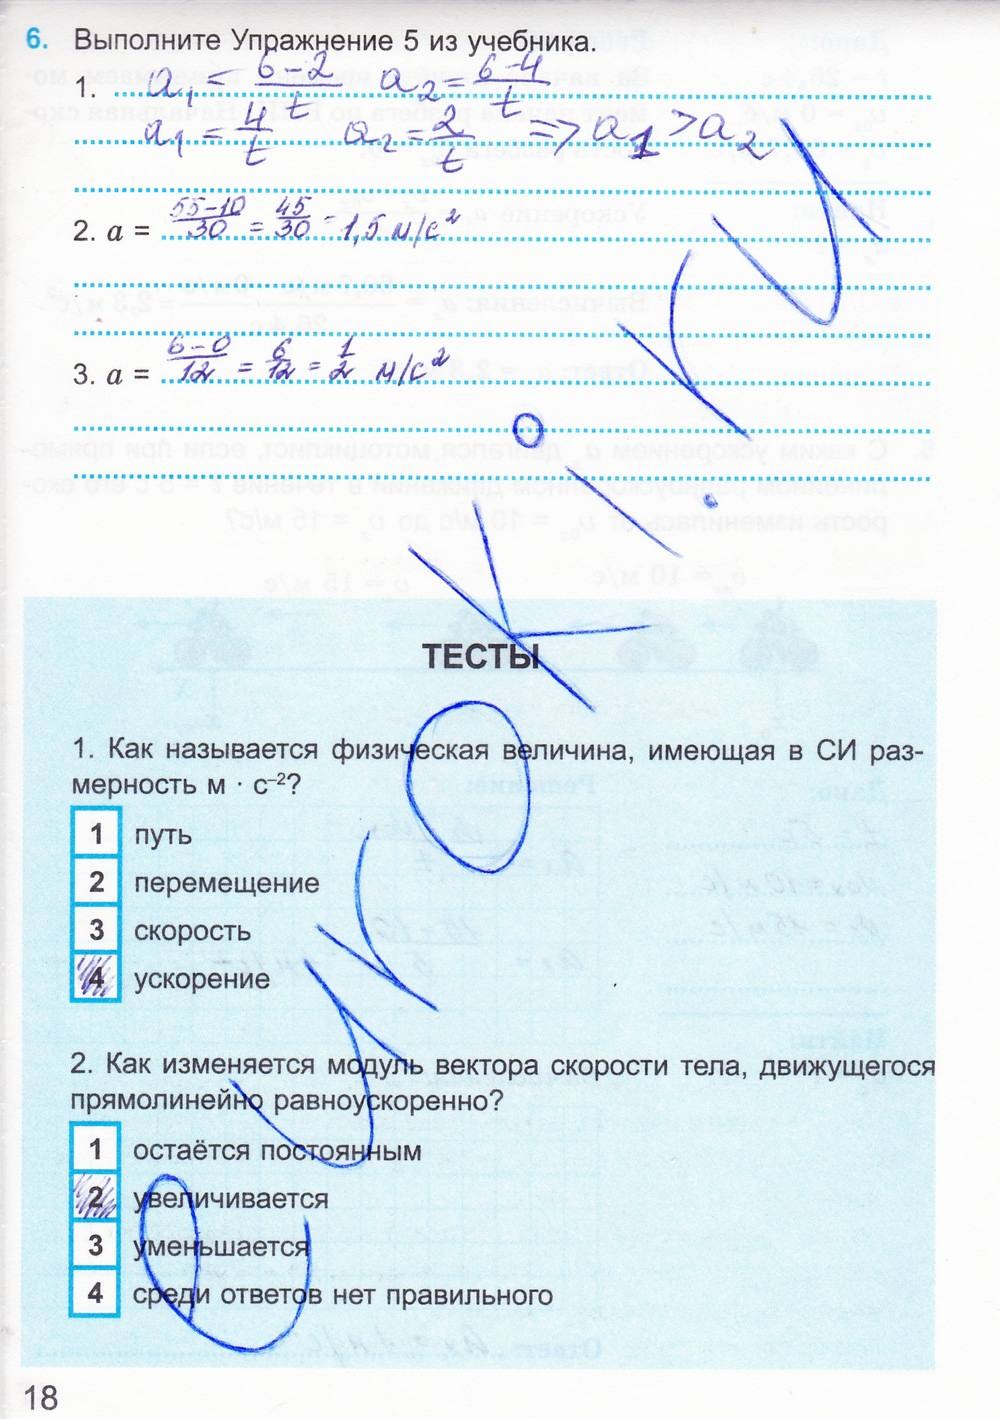 6. Выполните Упражнение 5 из учебника.
1. a₁ = (6-2)/t a₂ = (6-4)/t
a₁ = 4/t a₂ = 2/t => a₁ > a₂
2. a = (55-10)/30 = 45/30 = 1,5 м/с²
3. a = (6-0)/12 = 6/12 = 1/2 м/с²
ТЕСТЫ
1. Как называется физическая величина, имеющая в СИ раз-
мерность м · с⁻²?
1 путь
2 перемещение
3 скорость
4 ускорение
2. Как изменяется модуль вектора скорости тела, движущегося
прямолинейно равноускоренно?
1 остаётся постоянным
2 увеличивается
3 уменьшается
4 среди ответов нет правильного
18